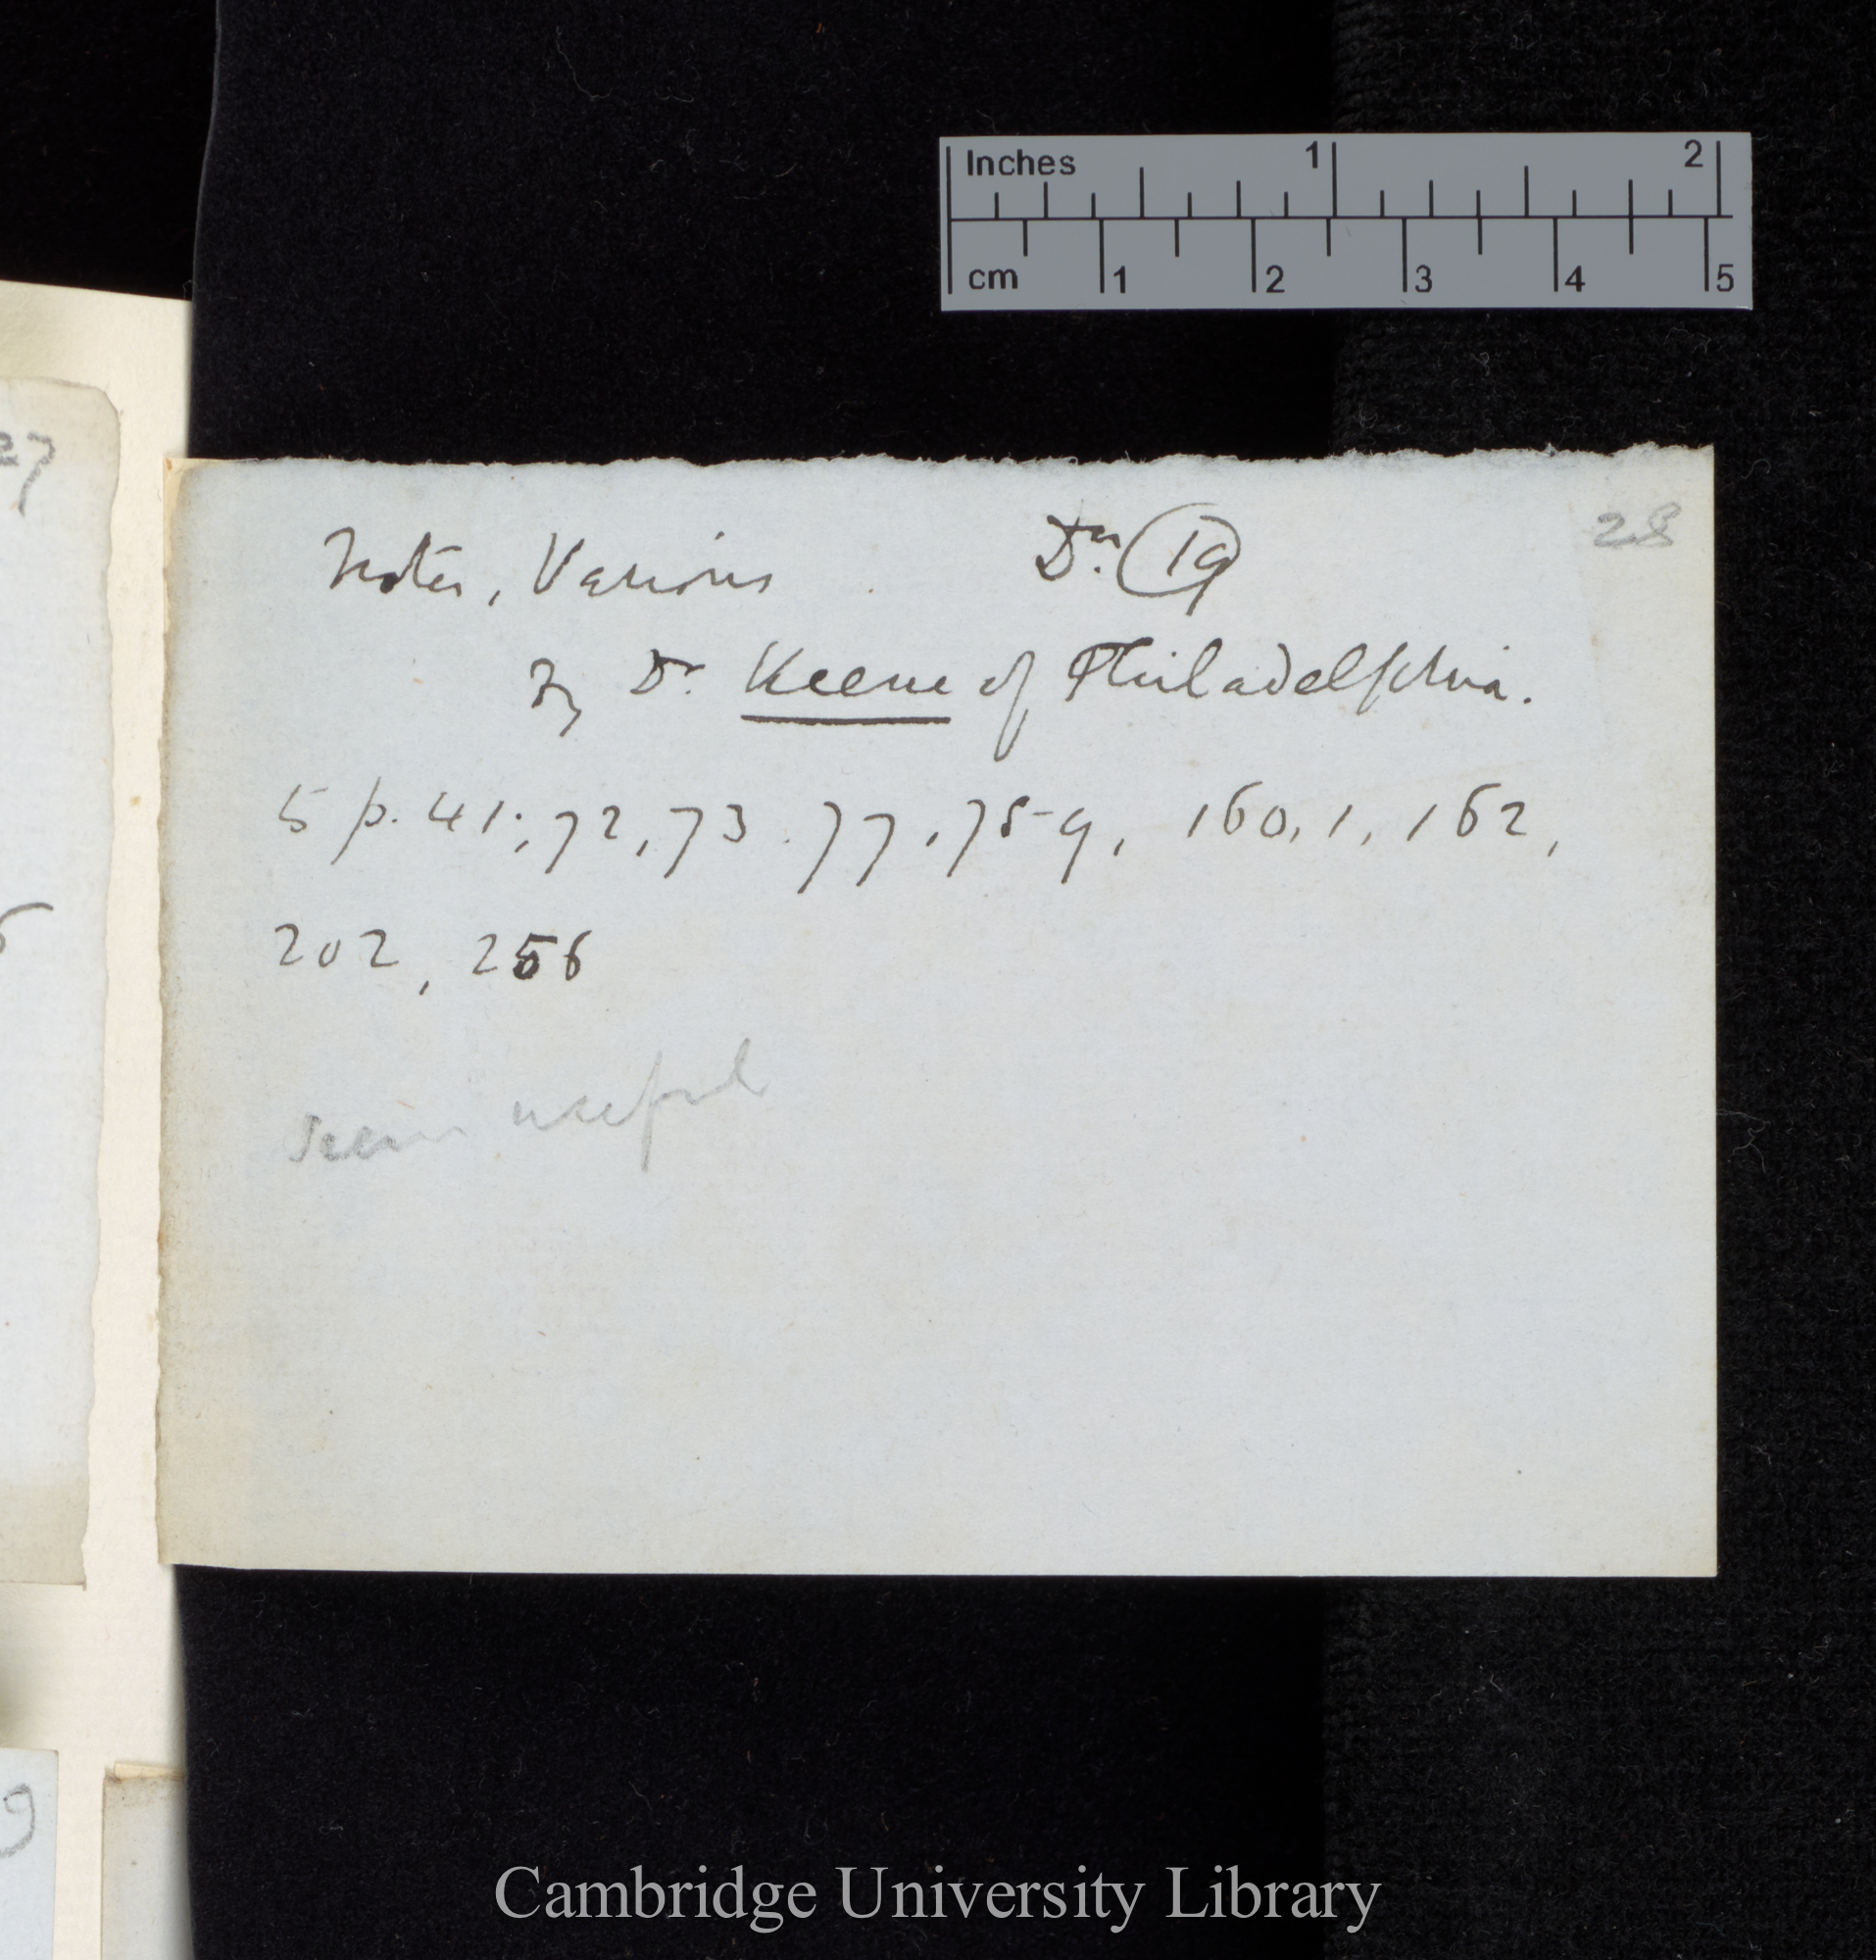 Inches 1 2
cm 1 2 3 4 5
27
28
Notes, Various Dr. 19
By Dr. Keene of Philadelphia.
5 p. 41; 72, 73. 77, 78-9, 160, 1, 162,
202, 256
seem useful
9
Cambridge University Library